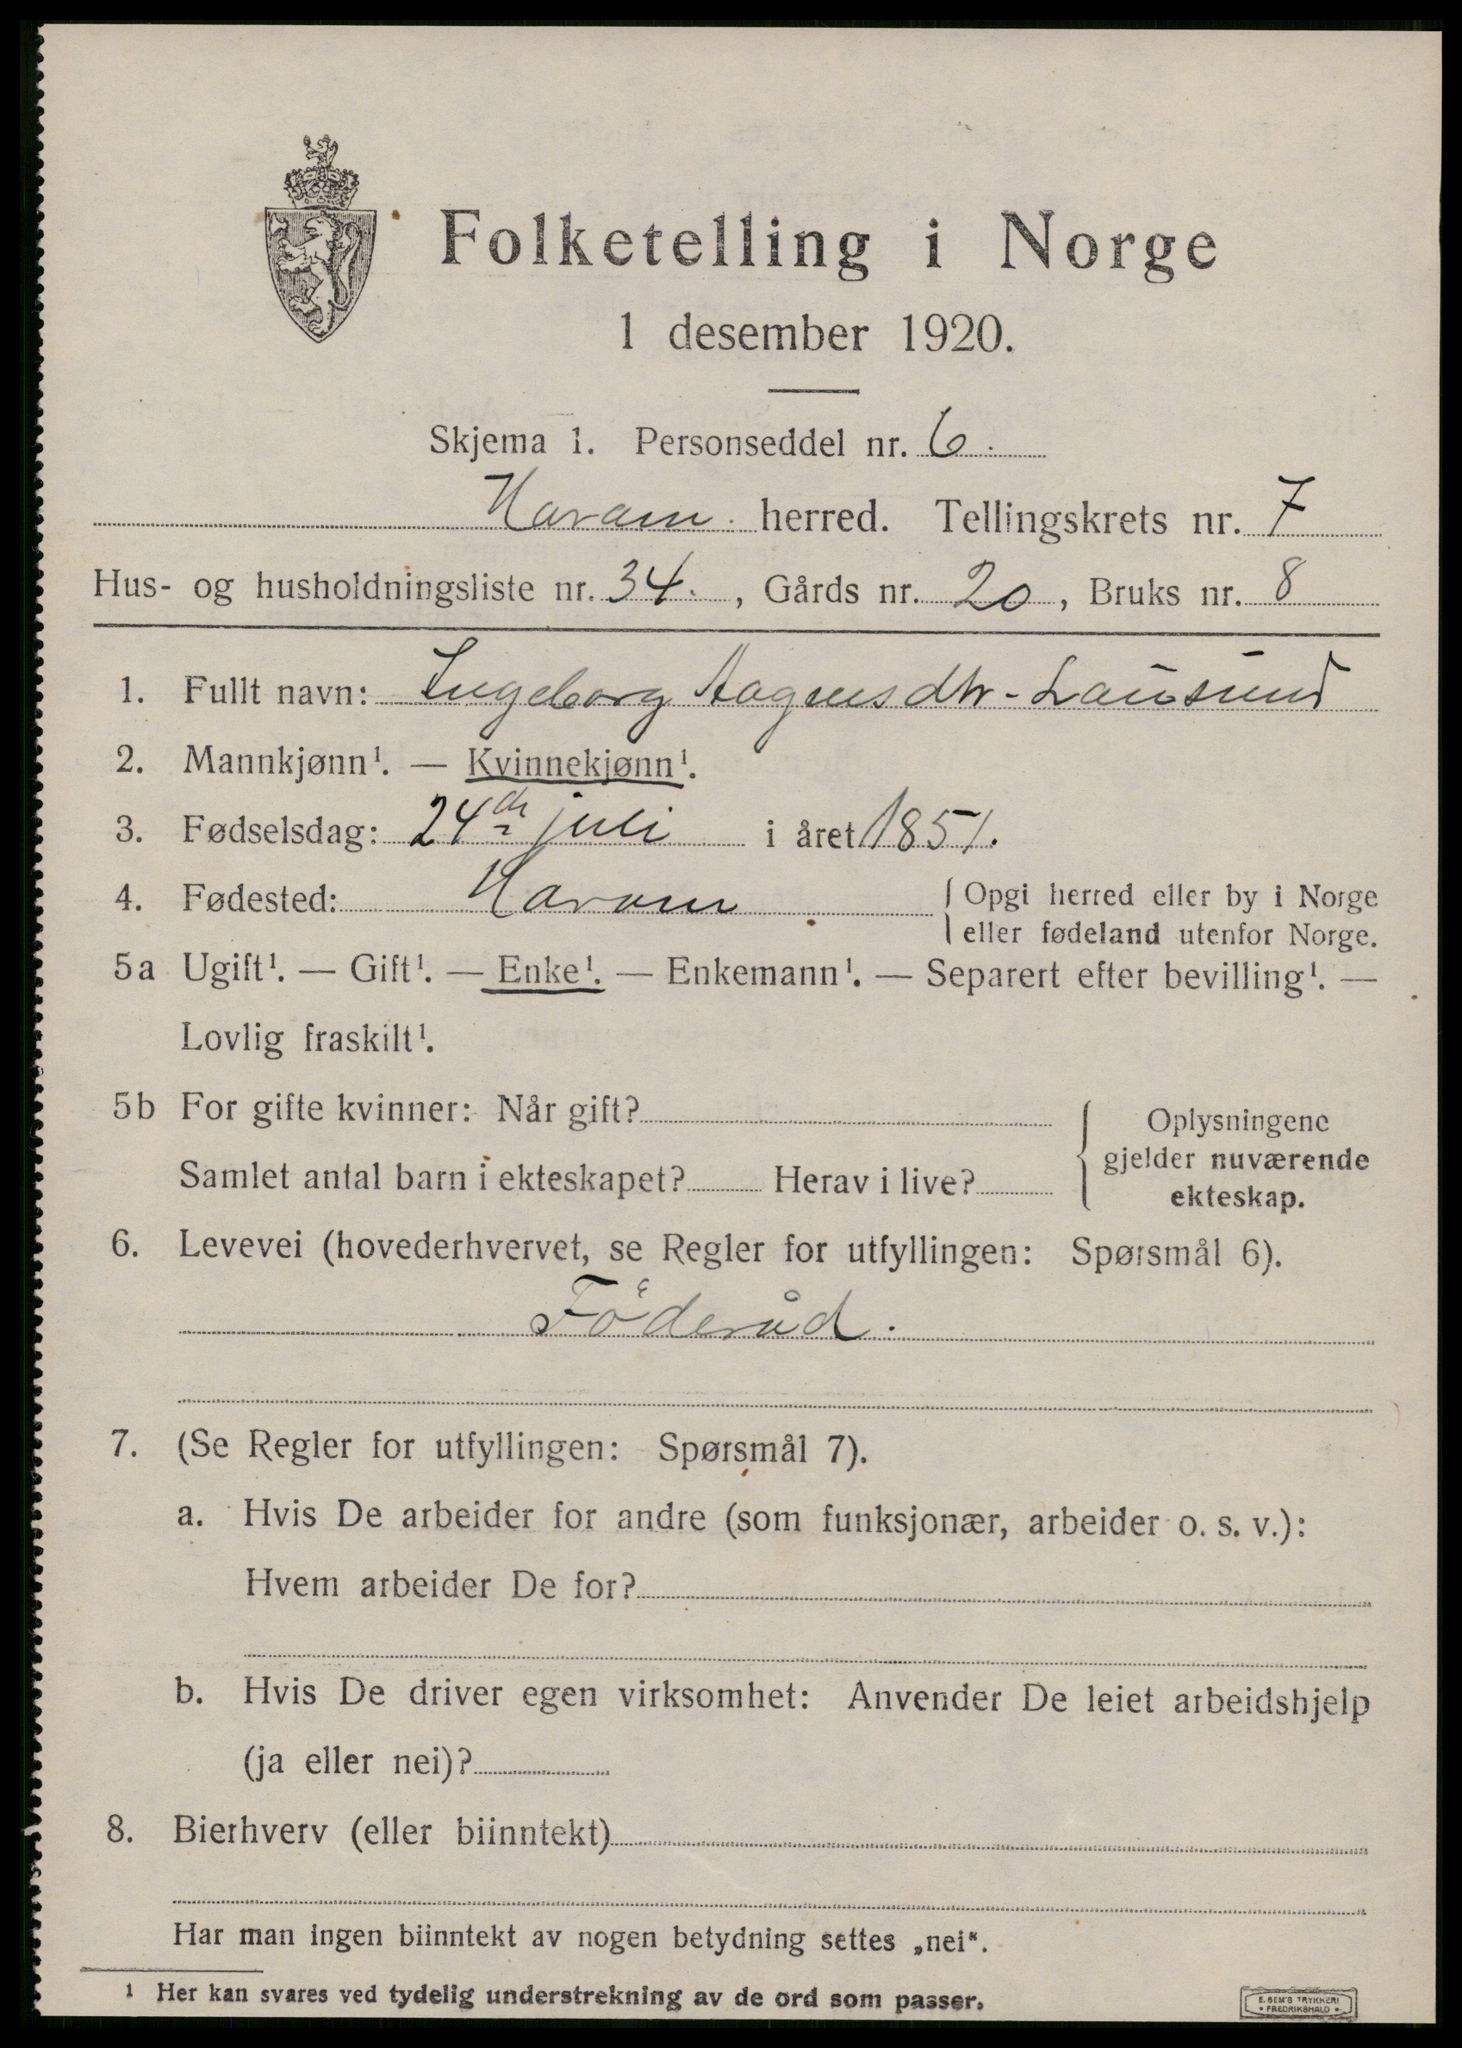 Folketelling i Norge
1 desember 1920.
Skjema 1. Personseddel nr. 6.
Haram. herred. Tellingskrets nr. 7
Hus- og husholdningsliste nr. 34. , Gårds nr. 20, Bruks nr. 8
1. Fullt navn: Ingeborg Aagensdtr. Lausund
2. Mannkjønn¹. — Kvinnekjønn¹.
3. Fødselsdag: 24de juli i året 1851.
4. Fødested: Haram { Opgi herred eller by i Norge
eller fødeland utenfor Norge.
5a Ugift¹. — Gift¹. — Enke¹. — Enkemann¹. — Separert efter bevilling¹. —
Lovlig fraskilt¹.
5b For gifte kvinner: Når gift?
Samlet antal barn i ekteskapet? Herav i live?
{ Oplysningene
gjelder nuværende
ekteskap.
6. Levevei (hovederhvervet, se Regler for utfyllingen: Spørsmål 6).
Föderåd.
7. (Se Regler for utfyllingen: Spørsmål 7).
a. Hvis De arbeider for andre (som funksjonær, arbeider o. s. v.):
Hvem arbeider De for?
b. Hvis De driver egen virksomhet: Anvender De leiet arbeidshjelp
(ja eller nei)?
8. Bierhverv (eller biinntekt)
Har man ingen biinntekt av nogen betydning settes „nei“.
1 Her kan svares ved tydelig understrekning av de ord som passer.
E. SEM'S TRYKKERI
• FREDRIKSHALD •